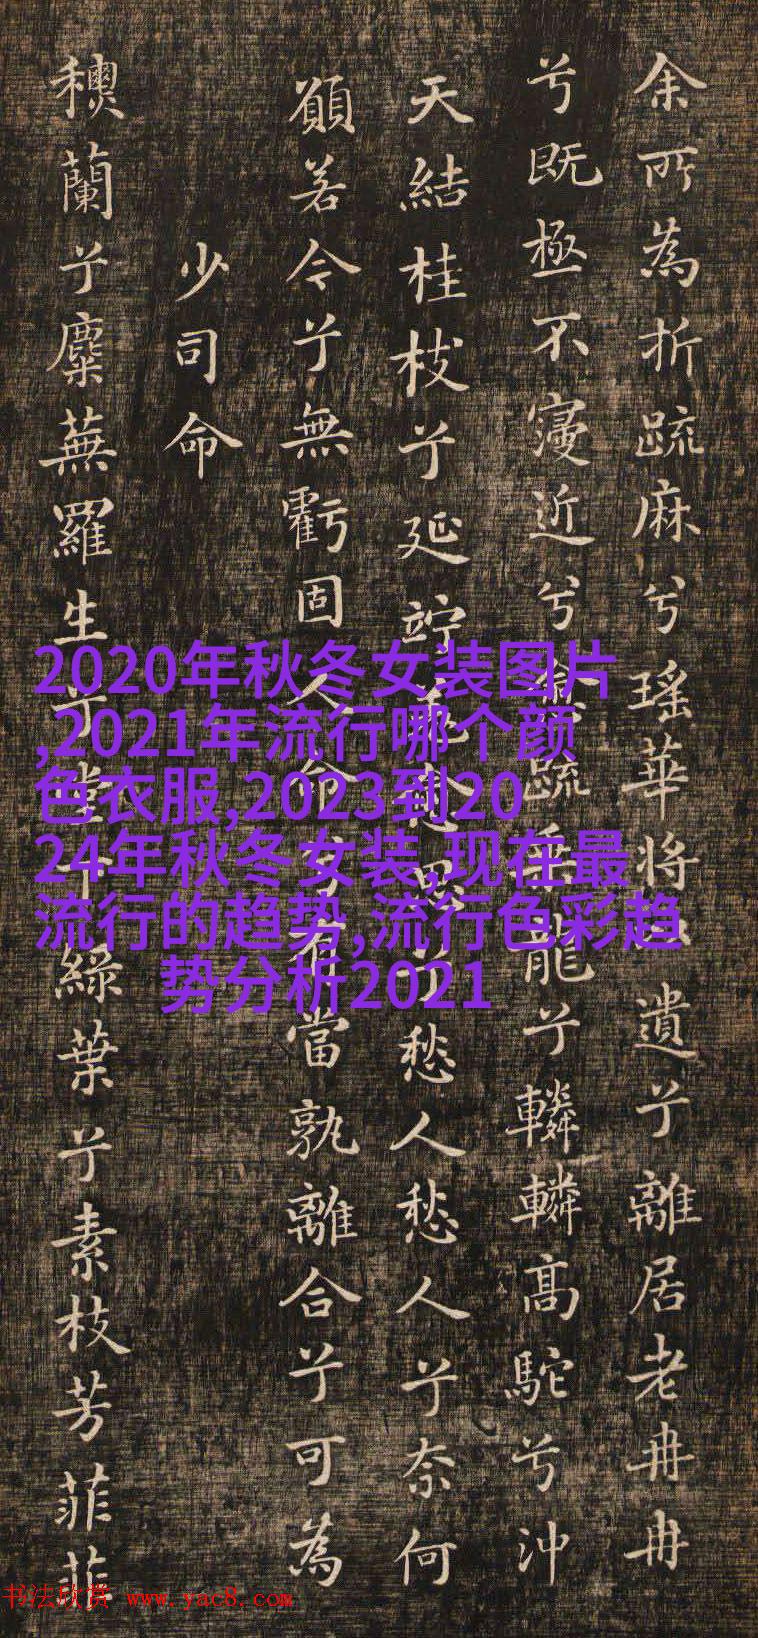 余所為折疏麻兮瑤華将遺兮離居老冉冉
兮既極不寖近兮愈疏乘龍兮轔轔高駝兮沖
天結桂枝兮延竚羌愈思兮愁人愁人兮奈何
願若今兮無虧固人命兮有當孰離合兮可為
少司命
蘭兮麋蕪羅生兮堂下綠葉兮素枝芳菲菲
2020年秋冬女装图片
,2021年流行哪个颜
色衣服,2023到20
24年秋冬女装,现在最
流行的趋势,流行色彩趋
势分析2021
书法欣赏 www.yac8.com